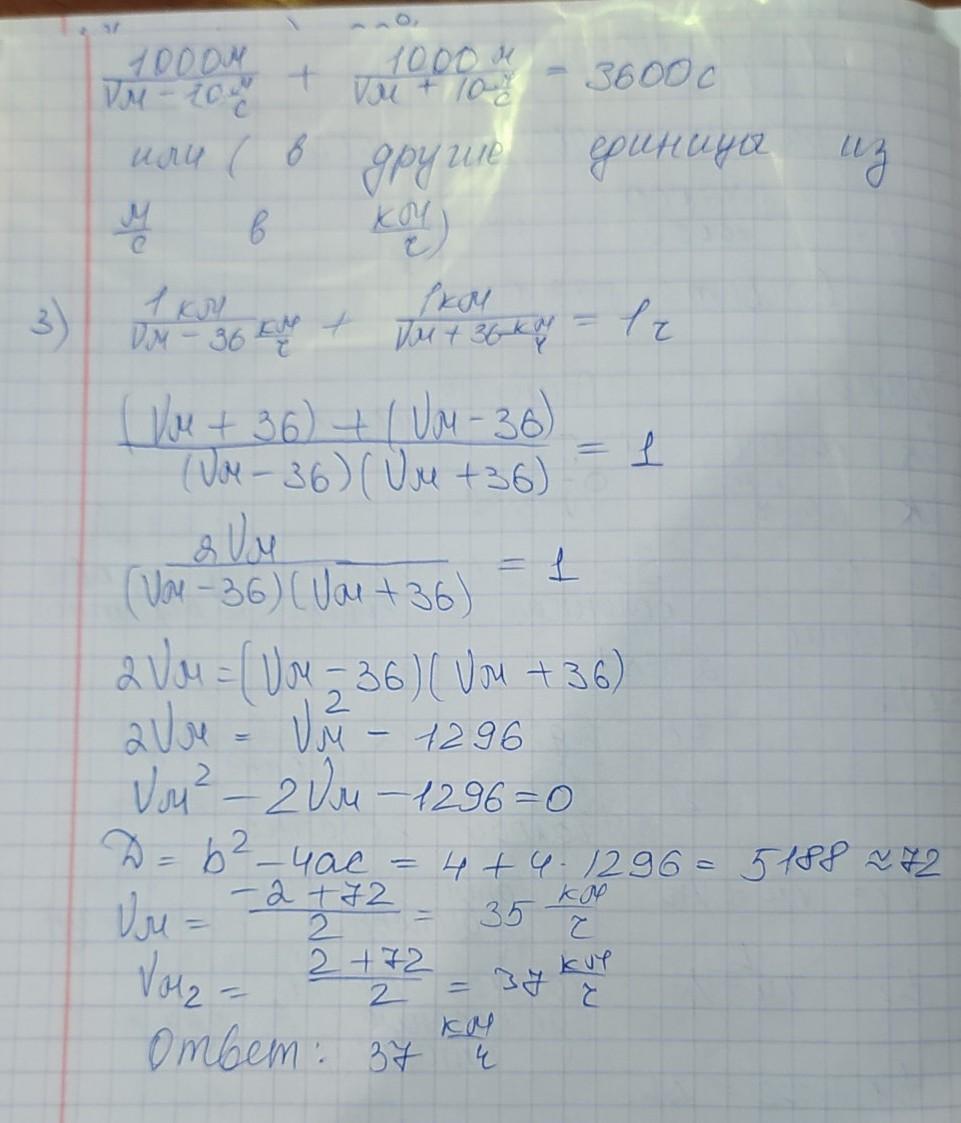 1000м/(Vм - 10 м/с) + 1000 м/(Vм + 10 м/с) = 3600с
или ( в другие единицы из
м/с в км/ч)
3) 1 км/(Vм - 36 км/ч) + 1км/(Vм + 36 км/ч) = 1ч
((Vм + 36) + (Vм - 36))/((Vм - 36)(Vм + 36)) = 1
2Vм/((Vм - 36)(Vм + 36)) = 1
2Vм = (Vм - 36)(Vм + 36)
2Vм = Vм² - 1296
Vм² - 2Vм - 1296 = 0
D = b² - 4ac = 4 + 4 · 1296 = 5188 ≈ 72
Vм = (-2 + 72)/2 = 35 км/ч
Vм₂ = (2 + 72)/2 = 37 км/ч
Ответ: 37 км/ч